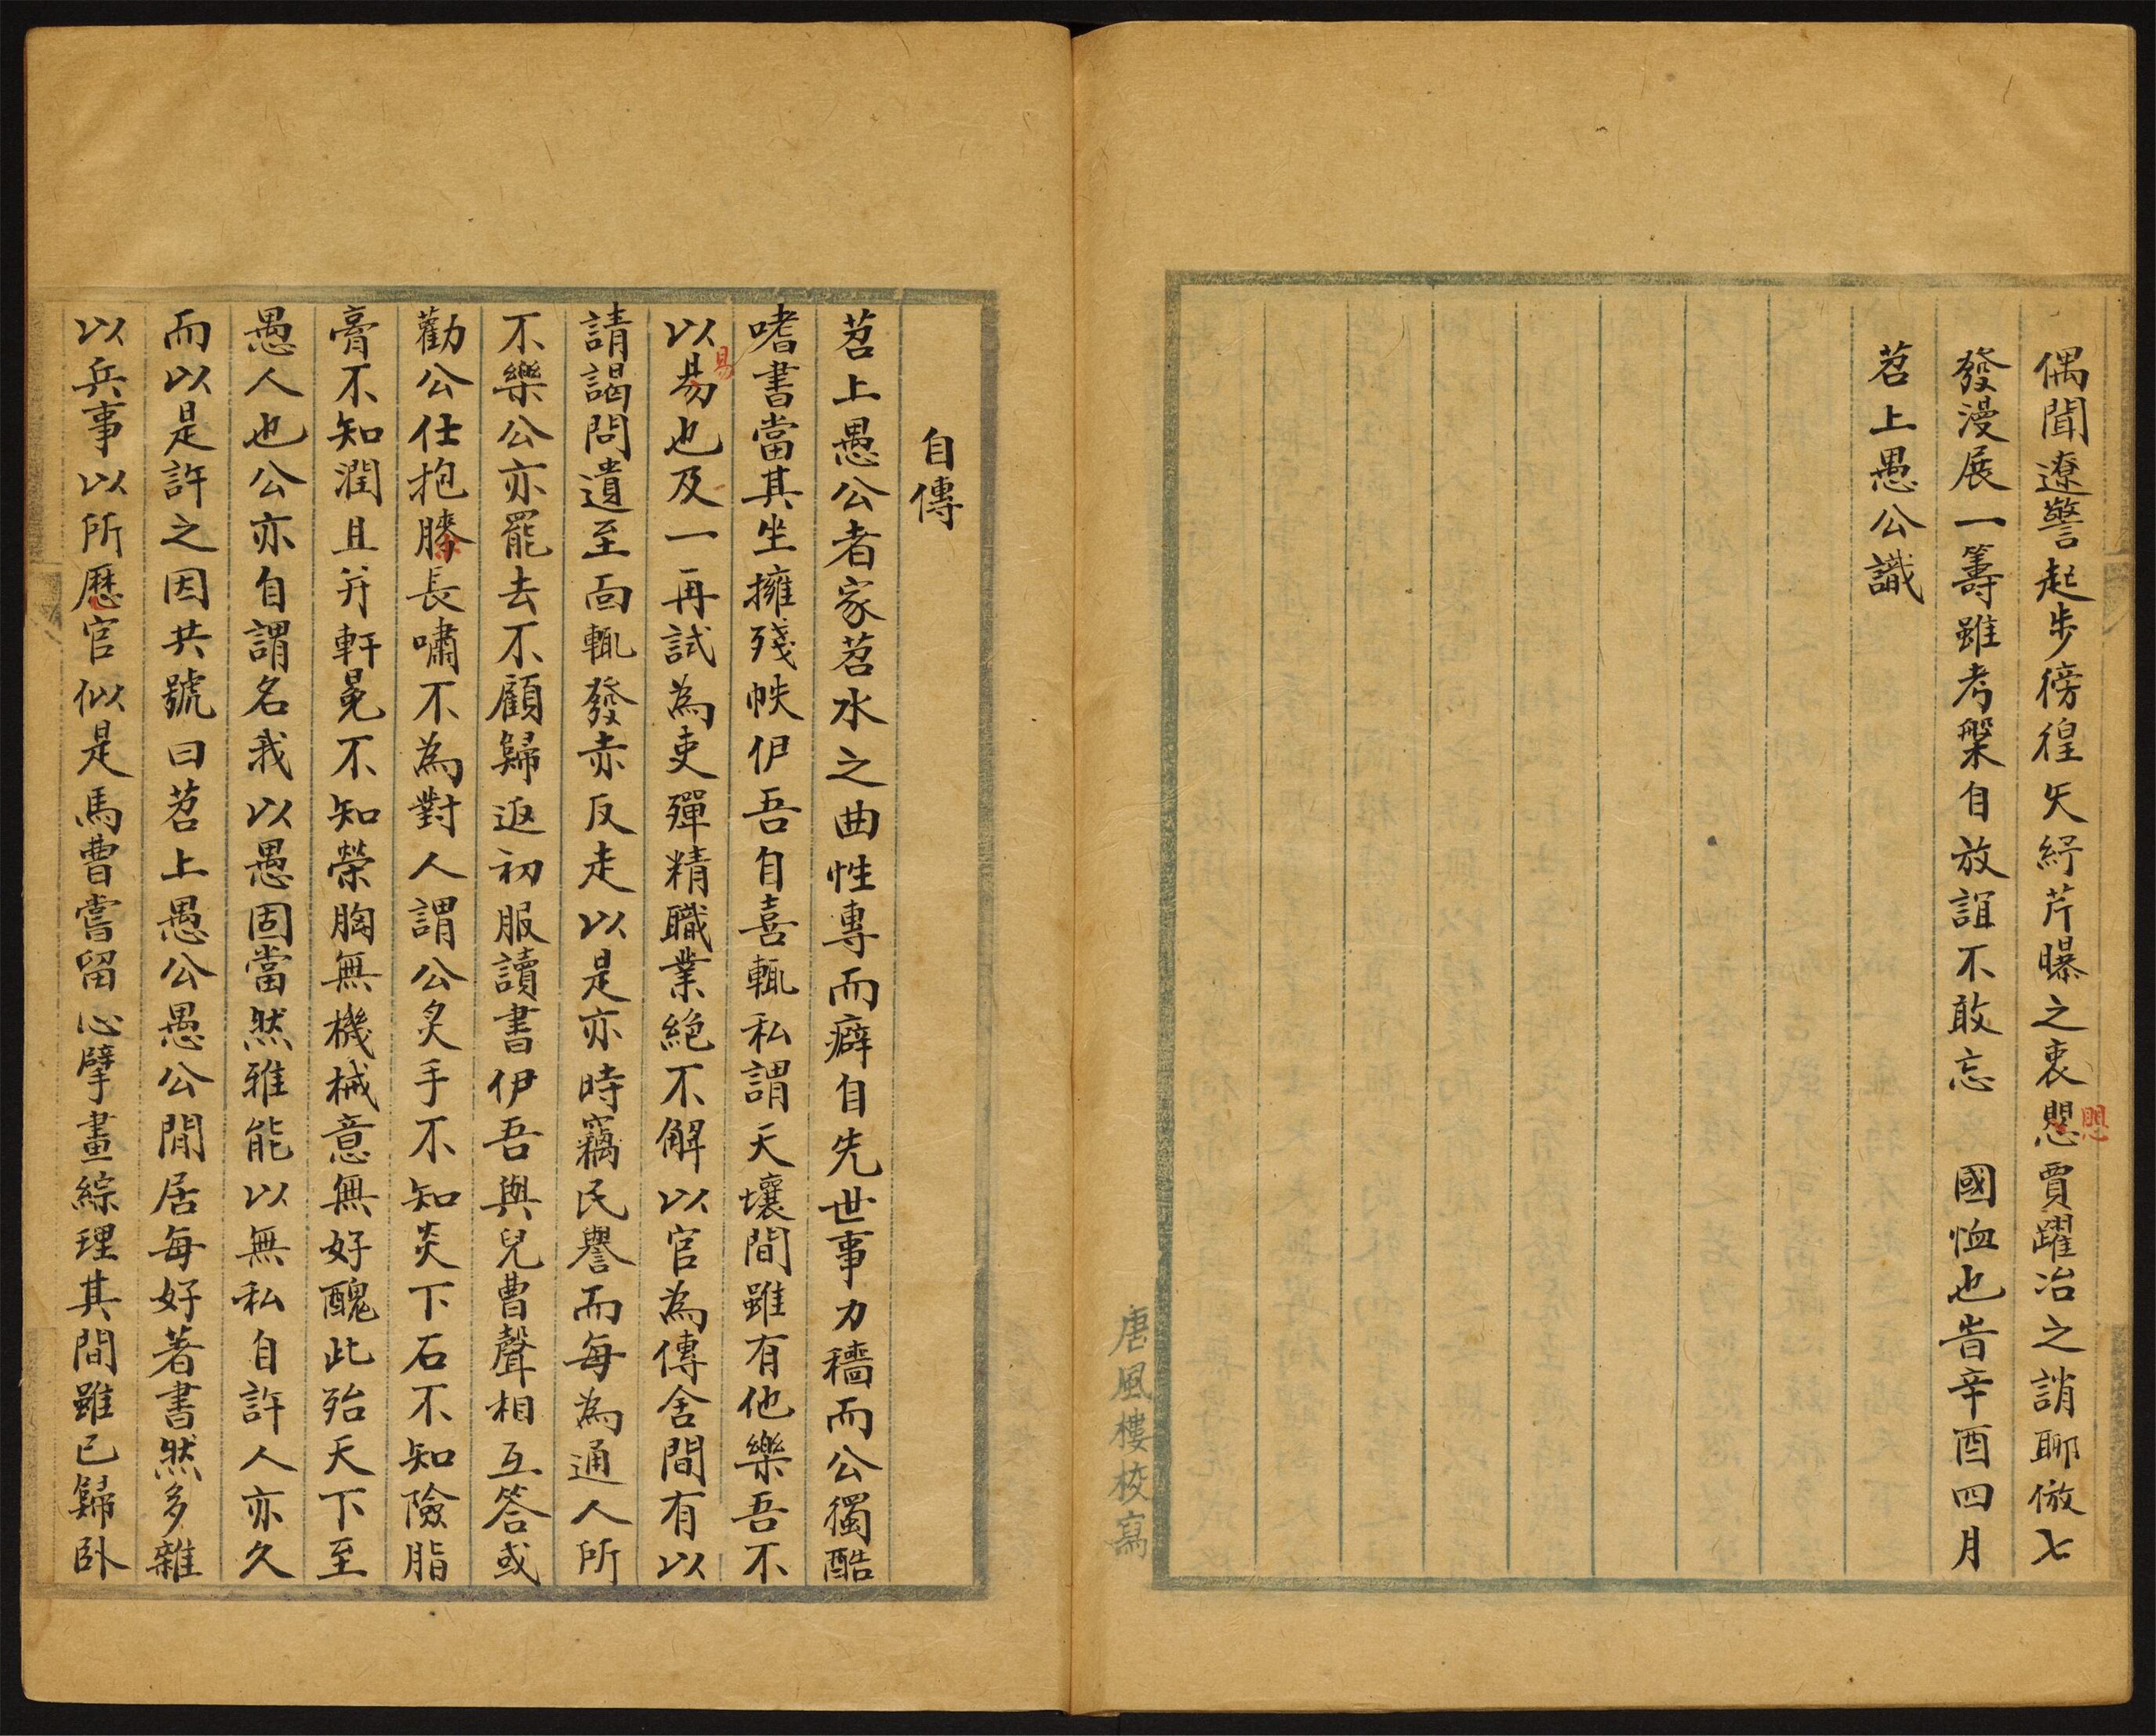 偶聞遼警起步徬徨矢紓芹曝之衷愳賈躍冶之誚聊倣七
發漫展一籌雖考槃自放誼不敢忘　國恤也旹辛酉四月
苕上愚公識
唐風樓校寫
自傳
苕上愚公者家苕水之曲性專而癖自先世事力穡而公獨酷
嗜書當其坐擁殘帙伊吾自喜輒私謂天壤間雖有他樂吾不
以易也及一再試為吏殫精職業絶不解以官為傳舍間有以
請謁問遺至面輒發赤反走以是亦時竊民譽而每為通人所
不樂公亦罷去不顧歸返初服讀書伊吾與兒曹聲相互答或
勸公仕抱膝長嘯不為對人謂公炙手不知炎下石不知險脂
膏不知潤且并軒冕不知榮胸無機械意無好醜此殆天下至
愚人也公亦自謂名我以愚固當然雅能以無私自許人亦久
而以是許之因共號曰苕上愚公愚公閒居每好著書然多雜
以兵事以所歷官似是馬曹嘗留心擘畫綜理其間雖已歸臥